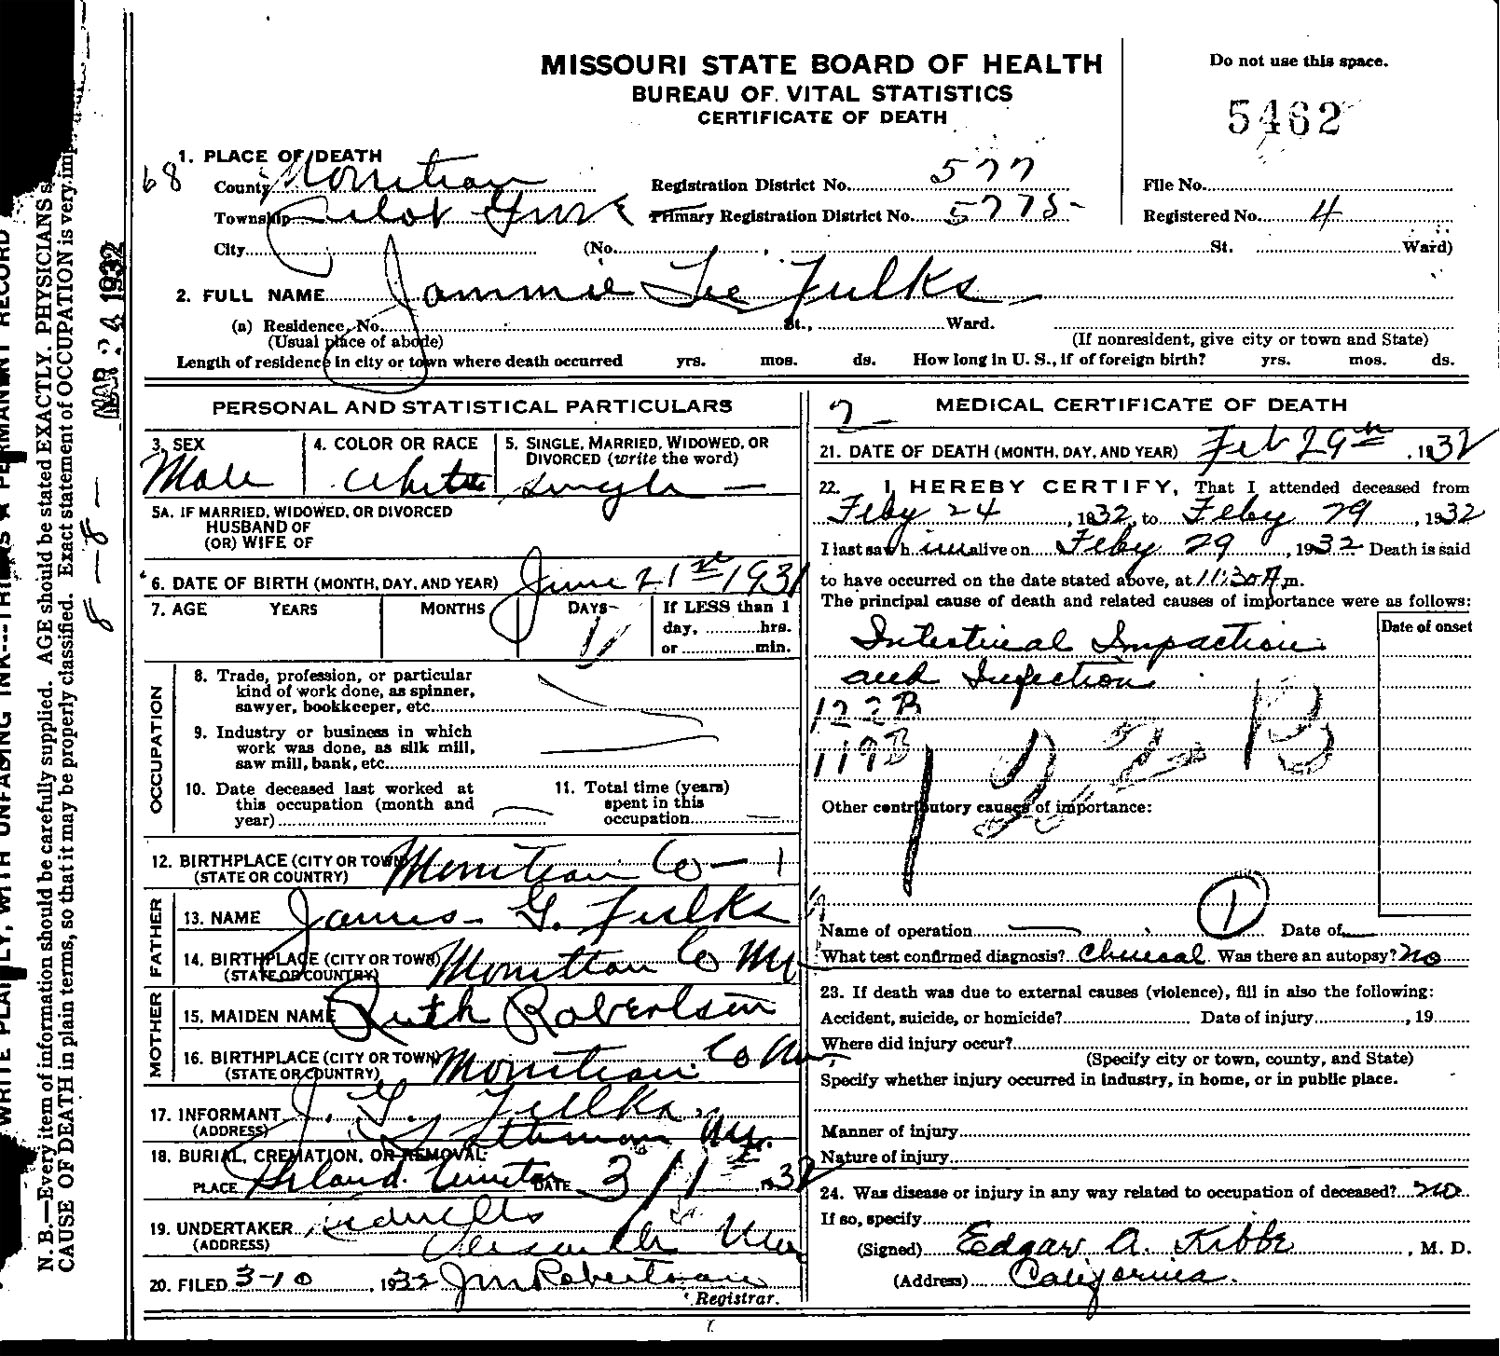 MISSOURI STATE BOARD OF HEALTH
BUREAU OF VITAL STATISTICS
CERTIFICATE OF DEATH
Do not use this space.
5462
1. PLACE OF DEATH
68
County Moniteau
Registration District No. 577
File No.
Township Pilot Grove
Primary Registration District No. 5775-
Registered No. 4
City
(No. , St. Ward)
2. FULL NAME Jammie Lee Fulks
(a) Residence, No. St., Ward.
(Usual place of abode)
(If nonresident, give city or town and State)
Length of residence in city or town where death occurred yrs. mos. ds. How long in U. S., if of foreign birth? yrs. mos. ds.
PERSONAL AND STATISTICAL PARTICULARS
3. SEX
Male
4. COLOR OR RACE
White
5. SINGLE, MARRIED, WIDOWED, OR
DIVORCED (write the word)
Single —
5A. IF MARRIED, WIDOWED, OR DIVORCED
HUSBAND OF
(OR) WIFE OF
6. DATE OF BIRTH (MONTH, DAY, AND YEAR) June 21st 1931
7. AGE YEARS MONTHS DAYS
If LESS than 1
day, hrs.
or min.
OCCUPATION
8. Trade, profession, or particular
kind of work done, as spinner,
sawyer, bookkeeper, etc.
9. Industry or business in which
work was done, as silk mill,
saw mill, bank, etc.
10. Date deceased last worked at
this occupation (month and
year)
11. Total time (years)
spent in this
occupation
12. BIRTHPLACE (CITY OR TOWN) Moniteau Co —
(STATE OR COUNTRY)
FATHER
13. NAME James G. Fulks
14. BIRTHPLACE (CITY OR TOWN) Moniteau Co Mo
(STATE OR COUNTRY)
MOTHER
15. MAIDEN NAME Ruth Robertson
16. BIRTHPLACE (CITY OR TOWN) Moniteau Co Mo
(STATE OR COUNTRY)
17. INFORMANT J. G. Fulks
(ADDRESS) Mo.
18. BURIAL, CREMATION, OR REMOVAL
PLACE DATE 3/1st 1932
19. UNDERTAKER
(ADDRESS) Mo
20. FILED 3-10, 1932
Registrar.
MEDICAL CERTIFICATE OF DEATH
21. DATE OF DEATH (MONTH, DAY, AND YEAR) Feb 29th, 1932
22. I HEREBY CERTIFY, That I attended deceased from
Feby 24, 1932, to Feby 29, 1932
I last saw him alive on Feby 29, 1932 Death is said
to have occurred on the date stated above, at 11:30 A m.
The principal cause of death and related causes of importance were as follows:
Date of onset
Intestinal Impaction
and Infection
122B
119B
122B
Other contributory causes of importance:
1
Name of operation Date of
What test confirmed diagnosis? Clinical Was there an autopsy? No
23. If death was due to external causes (violence), fill in also the following:
Accident, suicide, or homicide? Date of injury , 19
Where did injury occur?
(Specify city or town, county, and State)
Specify whether injury occurred in industry, in home, or in public place.
Manner of injury
Nature of injury
24. Was disease or injury in any way related to occupation of deceased? No
If so, specify
(Signed) Edgar A. Kibbe, M. D.
(Address) California.
N. B.—Every item of information should be carefully supplied. AGE should be stated EXACTLY. PHYSICIANS
CAUSE OF DEATH in plain terms, so that it may be properly classified. Exact statement of OCCUPATION is very imp
MAR 24 1932
8 — 8 —